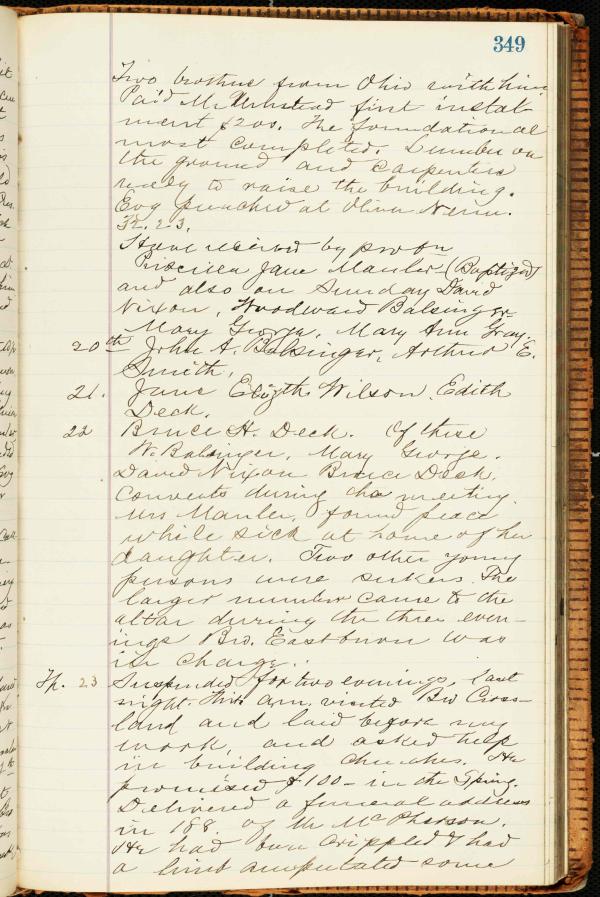 349
Two brothers from Ohio with him
Paid Mr Umstead first instal-
ment $200. The foundation al
most completed. Lumber on
the ground and carpenters
ready to raise the building.
Evg preached at Oliver Neme.
Ft. 23.
Have received by prob'n
Priscilla Jane Manler (Baptized)
and also on Sunday David
Nixon, Woodward Balsinger
Mary George, Mary Ann Gray.
20th John A. Balsinger, Arthur E.
Smith,
21. Jane Elizth Wilson, Edith
Deck.
22 Bruce H. Deck. Of these
W. Balsinger, Mary George.
David Nixon Bruce Deck.
Converts during the meeting.
Mrs Manler, found peace
while sick at home of her
daughter. Two other young
persons were seekers. The
larger number came to the
altar during the three even-
ings Bro. Eastburn was
in charge.
23 Suspended for two evenings, last
night. This a.m. visited Bro Cross-
land and laid before my
work, and asked help
in building churches. He
promised $100- in the Spring.
Delivered a funeral address
in 188. of Mr McPherson.
He had been crippled & had
a limb amputated some